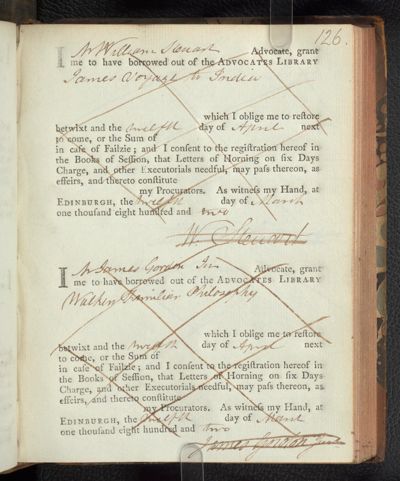 126.
I Mr William Steuart Advocate, grant
me to have borrowed out of the ADVOCATES LIBRARY
James Voyage to India
which I oblige me to reſtore
betwixt and the twelfth day of April next
to come, or the Sum of
in caſe of Failzie; and I conſent to the regiſtration hereof in
the Books of Seſſion, that Letters of Horning on ſix Days
Charge, and other Executorials needful, may paſs thereon, as
effeirs, and thereto conſtitute
my Procurators. As witneſs my Hand, at
EDINBURGH, the twelfth day of March
one thouſand eight hundred and two
W. Steuart
I Mr James Gordon Jun Advocate, grant
me to have borrowed out of the ADVOCATES LIBRARY
Walker Familiar Philosophy
which I oblige me to reſtore
betwixt and the twelfth day of April next
to come, or the Sum of
in caſe of Failzie; and I conſent to the regiſtration hereof in
the Books of Seſſion, that Letters of Horning on ſix Days
Charge, and other Executorials needful, may paſs thereon, as
effeirs, and thereto conſtitute
my Procurators. As witneſs my Hand, at
EDINBURGH, the twelfth day of March
one thouſand eight hundred and two
James Gordon Junr